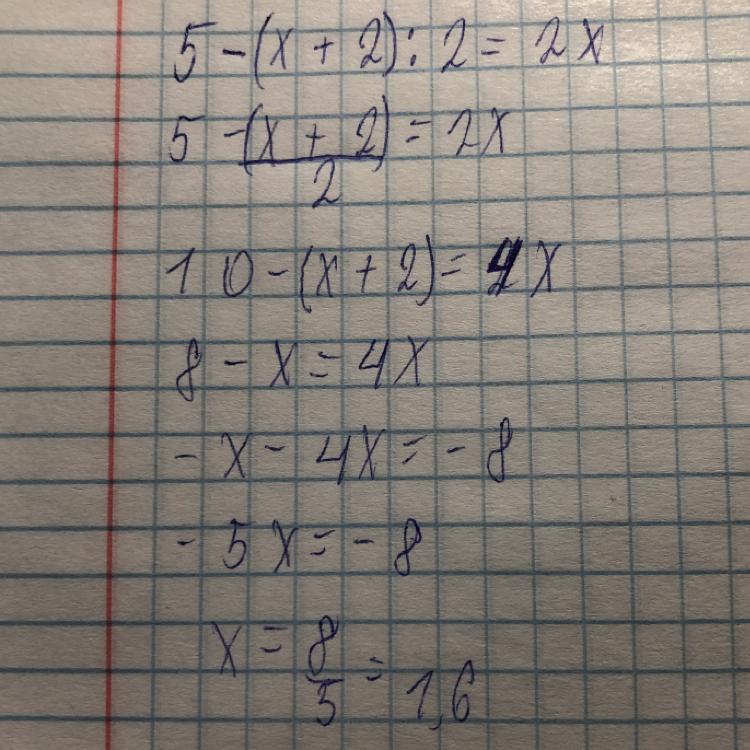 5 - (x + 2) : 2 = 2x
5 - (x + 2)/2 = 2x
10 - (x + 2) = 4x
8 - x = 4x
- x - 4x = - 8
- 5x = - 8
x = 8/5 = 1,6